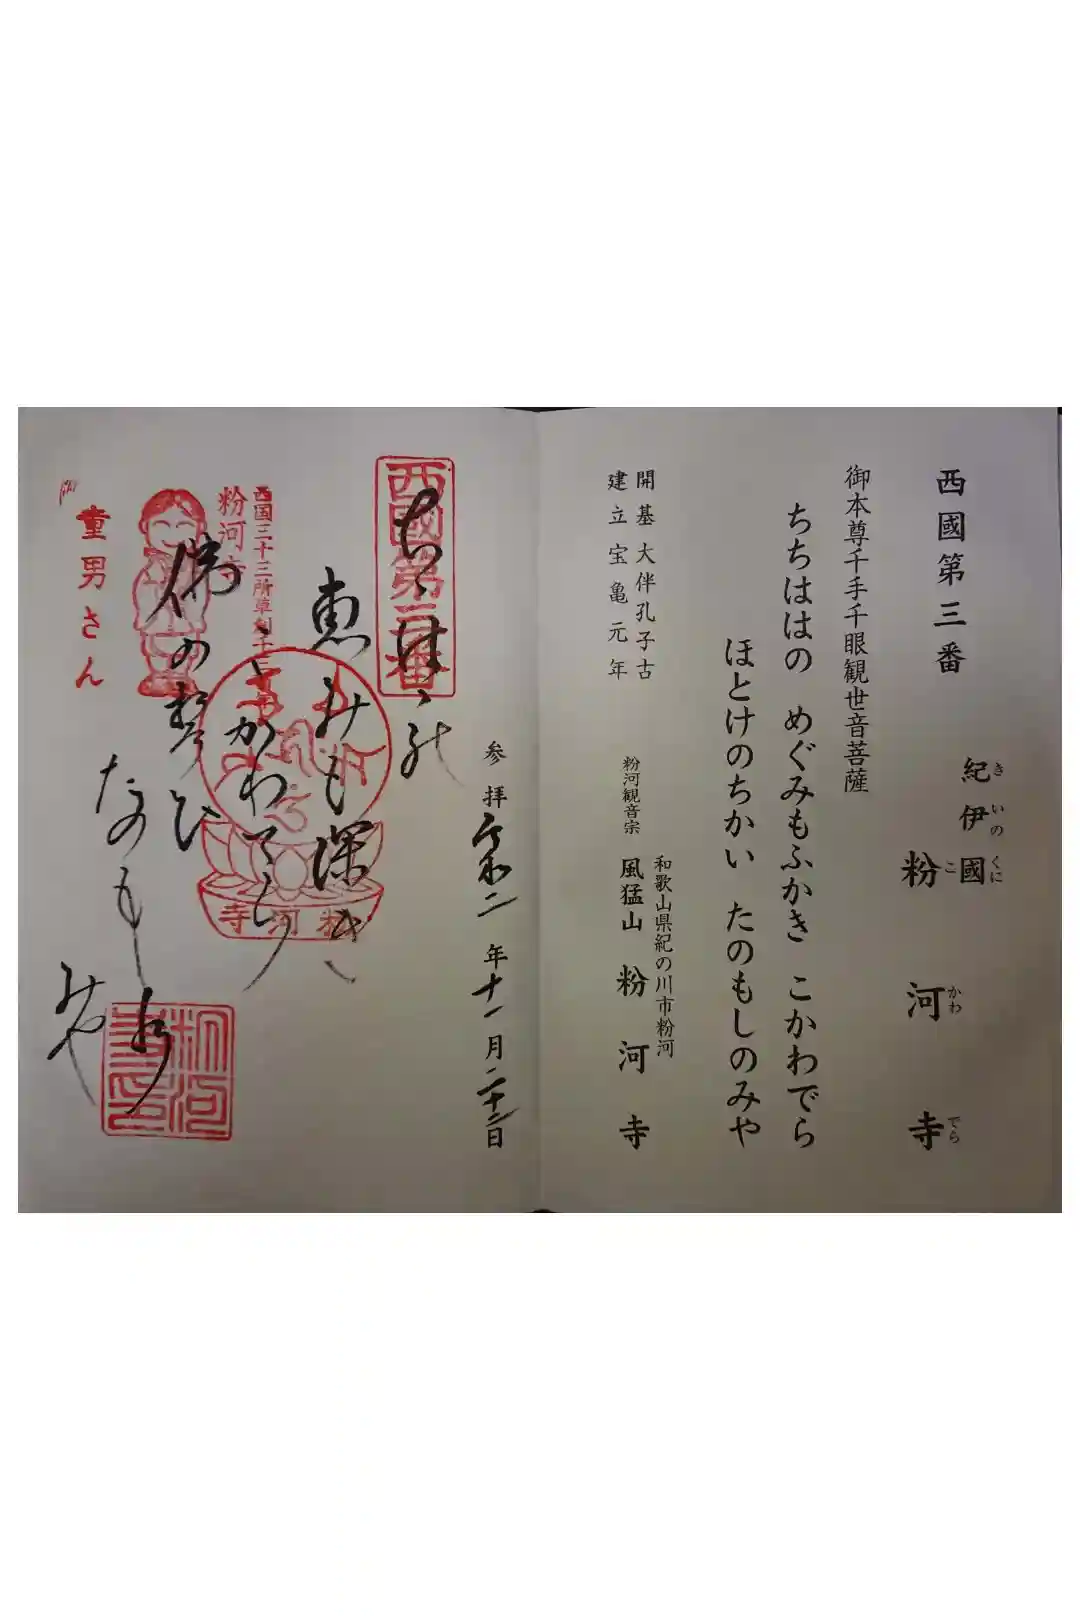 西國第三番
紀伊國
きいのくに
粉河寺
こかわでら
御本尊千手千眼観世音菩薩
ちちははの めぐみもふかき こかわでら
ほとけのちかい たのもしのみや
開基 大伴孔子古
建立 宝亀元年
和歌山県紀の川市粉河
粉河観音宗 風猛山 粉河寺
参拝 令和二年十一月二十二日
西國第三番
ちゝはゝの
恵みも深き
こかわでら
佛の誓ひ
たのもしの
みや
西国三十三所草創千三百年
粉河寺
童男さん
粉河寺
粉河寺印